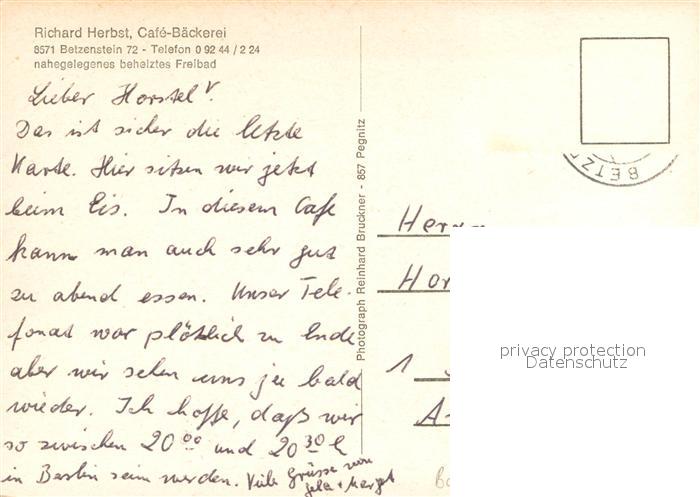 Richard Herbst, Café-Bäckerei
8571 Betzenstein 72 - Telefon 0 92 44 / 2 24
nahegelegenes beheiztes Freibad
Lieber Horstel!
Das ist sicher die letzte
Karte. Hier sitzen wir jetzt
beim Eis. In diesem Café
kann man auch sehr gut
zu abend essen. Unser Tele-
fonat war plötzlich zu Ende
aber wir sehen uns ja bald
wieder. Ich hoffe, daß wir
so zwischen 20⁰⁰ und 20³⁰ h
in Berlin sein werden. Viele Grüsse von
+ Margot
Photograph Reinhard Bruckner - 857 Pegnitz
BETZ
Herrn
Hor
1
A
privacy protection
Datenschutz